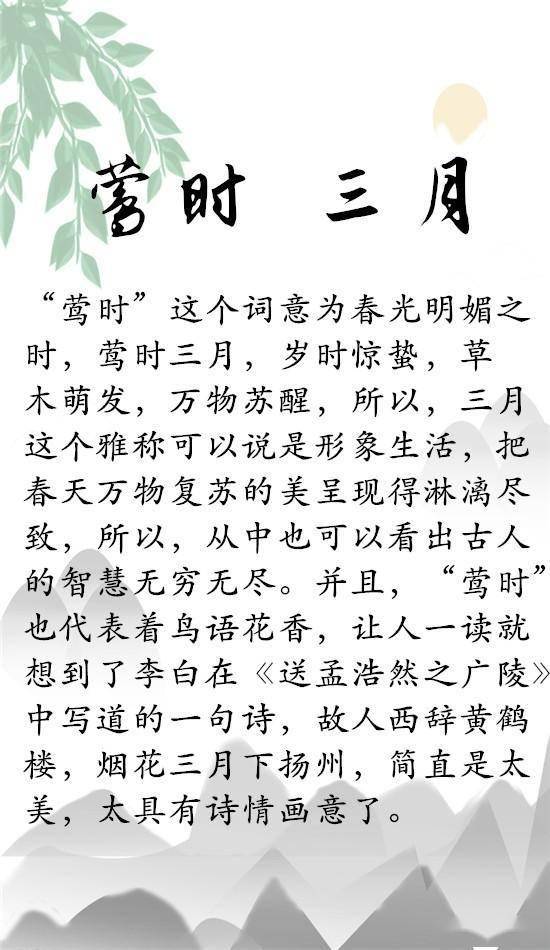 莺时 三月
“莺时”这个词意为春光明媚之
时，莺时三月，岁时惊蛰，草
木萌发，万物苏醒，所以，三月
这个雅称可以说是形象生活，把
春天万物复苏的美呈现得淋漓尽
致，所以，从中也可以看出古人
的智慧无穷无尽。并且，“莺时”
也代表着鸟语花香，让人一读就
想到了李白在《送孟浩然之广陵》
中写道的一句诗，故人西辞黄鹤
楼，烟花三月下扬州，简直是太
美，太具有诗情画意了。